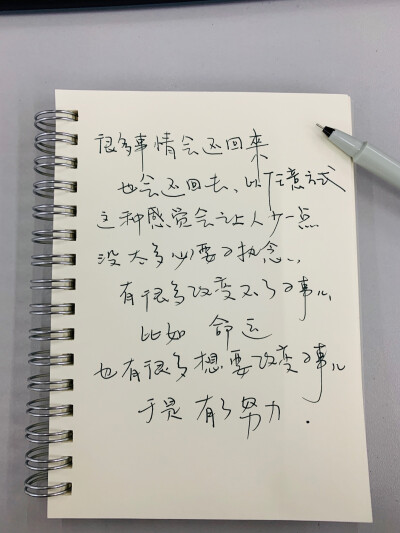 很多事情会还回来
也会还回去、以任意方式
这种感觉会让人少一点
没太多必要的执念..
有很多改变不了的事儿
比如 命运
也有很多想要改变的事儿
于是 有了努力.